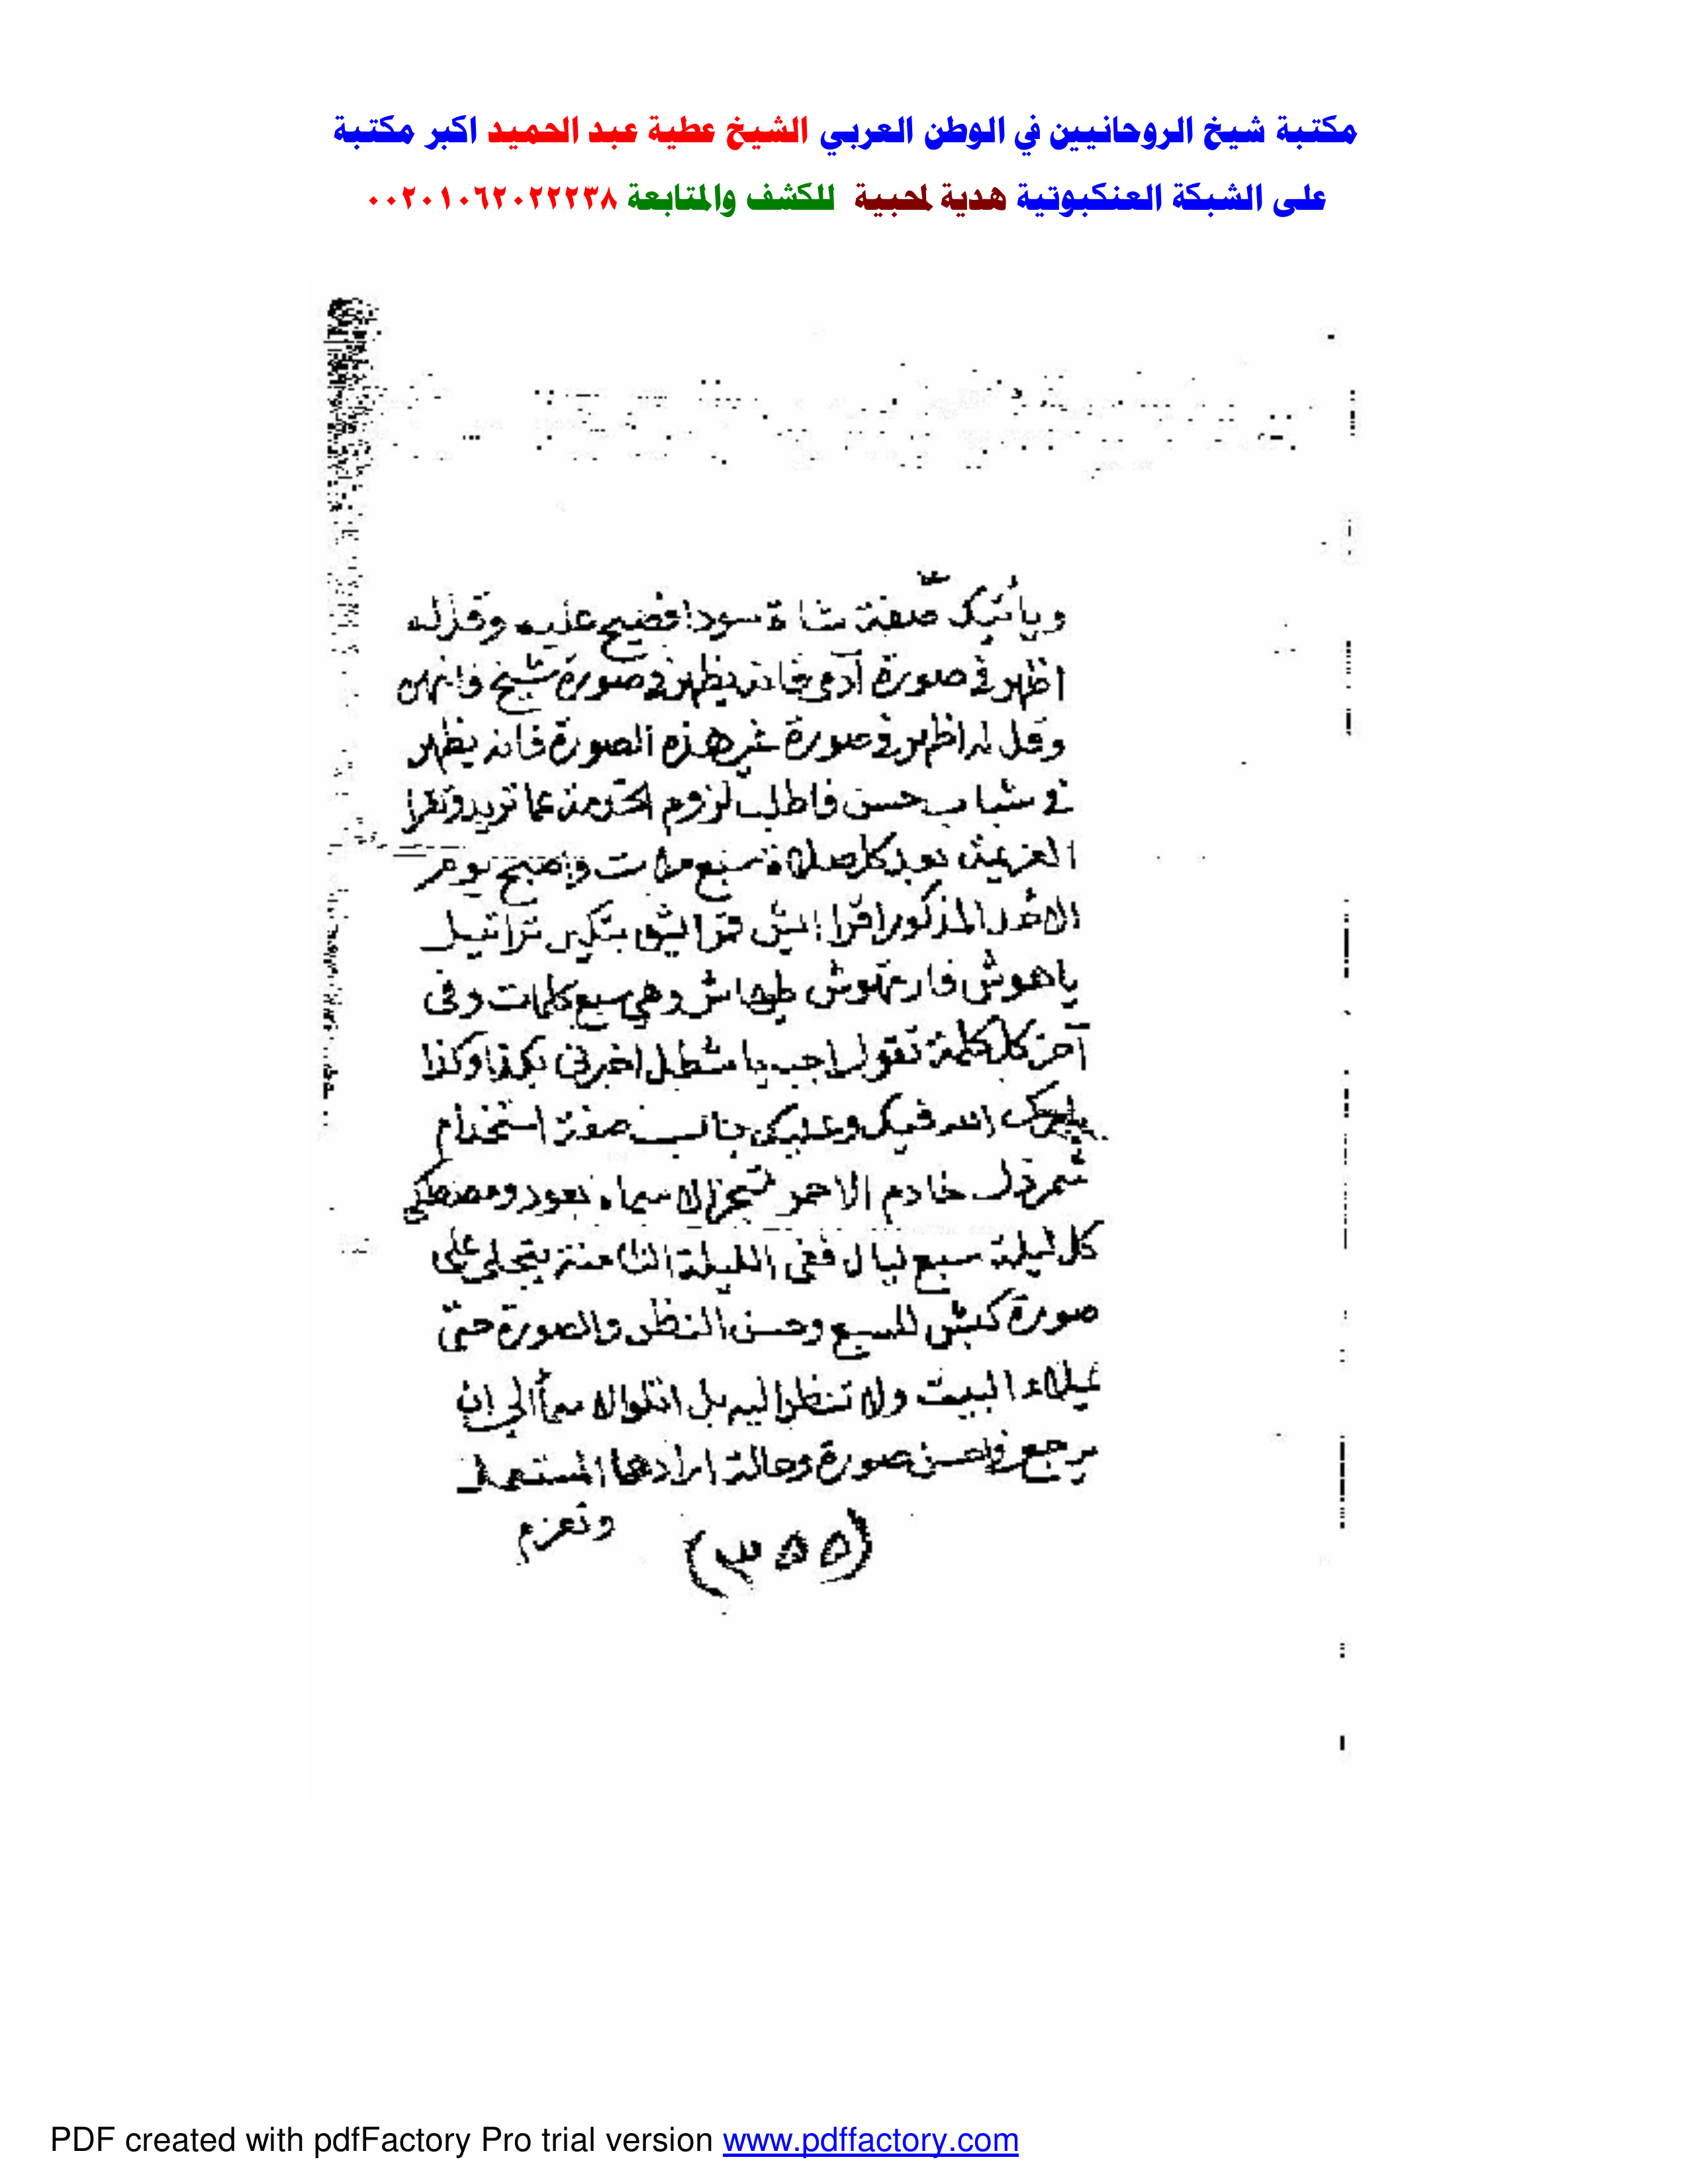 مكتبة شيخ الروحانيين في الوطن العربي الشيخ عطية عبد الحميد اكبر مكتبة
على الشبكة العنكبوتية هدية لمحبية للكشف والمتابعة ٠٠٢٠١٠٦٢٠٢٢٢٣٨
ويأتيك صفة شاة سودا فصيح عليه وقل له
اظهر في صورة آدمي فانه يظهر في صورة شيخ فانهر
وقل له اظهر في صورة غير هذه الصورة فانه يظهر
في شباب حسن فاطلب لزوم الخدمة عما تريد وتقرا
العزيمة بعد كل صلاة سبع مرات واصبح يوم
الاحد المذكور اقرا
ياهوش وهي سبع كلمات وفى
آخر كل كلمة تقول اجب يا اخبرني بكذا وكذا
الله فيك وعليك صفة استخدام
خادم الاحمر بعود ومصطكى
كل ليلة سبع ليال ففى الليلة الثامنة يتجلى على
صورة كبش وحسن النظر والصورة حتى
البيت ولا تنظر اليه بل اتلو الاسما الى ان
يرجع في احسن صورة وحالة ارادها المستعمل
وتعزم
(٣٥٥)
PDF created with pdfFactory Pro trial version www.pdffactory.com